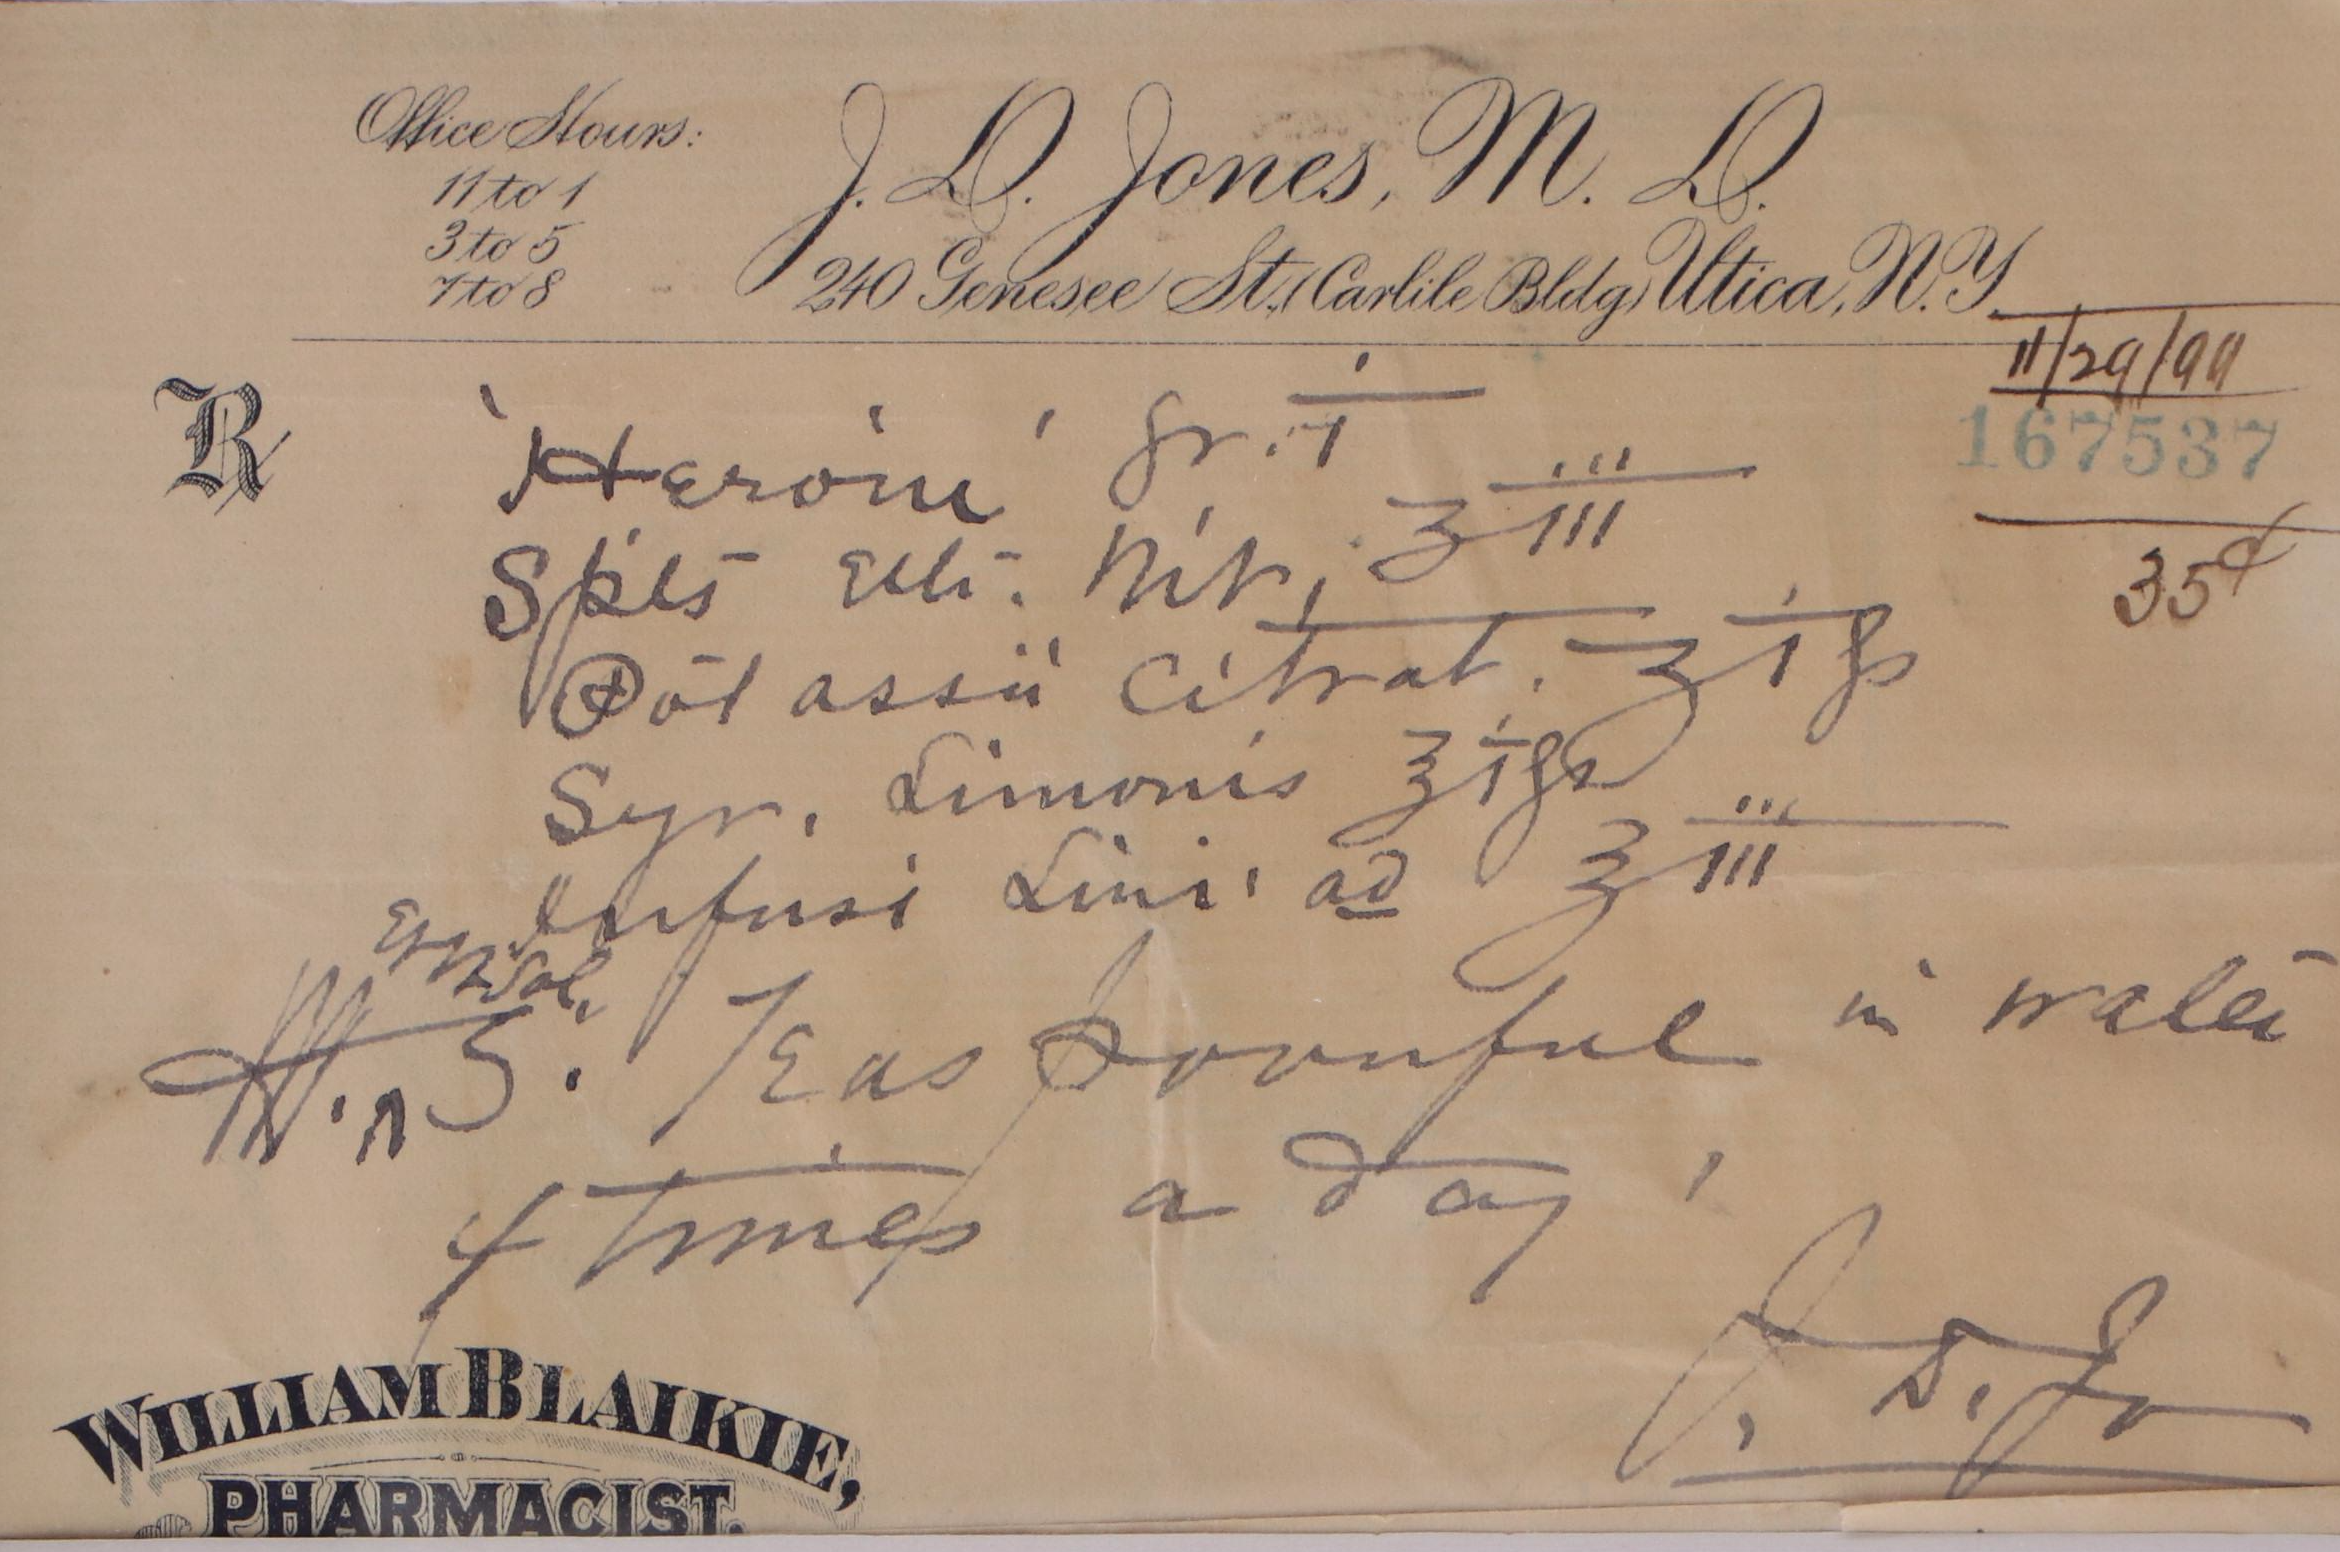 Office Hours:
11 to 1
3 to 5
7 to 8
J. D. Jones, M. D.
240 Genesee St., (Carlile Bldg) Utica, N. Y.
11/29/99
167537
35¢
℞
'Heroin' gr. i
Spts Eth. Nit. ℥ iii
Potassii Citrat. ʒ i ss
Syr. Limonis ℥ i ss
Infusi Lini. ad ℥ iii
Sol.
S. Teaspoonful in water
4 times a day
J. D. Jo
WILLIAM BLAIKIE,
PHARMACIST.